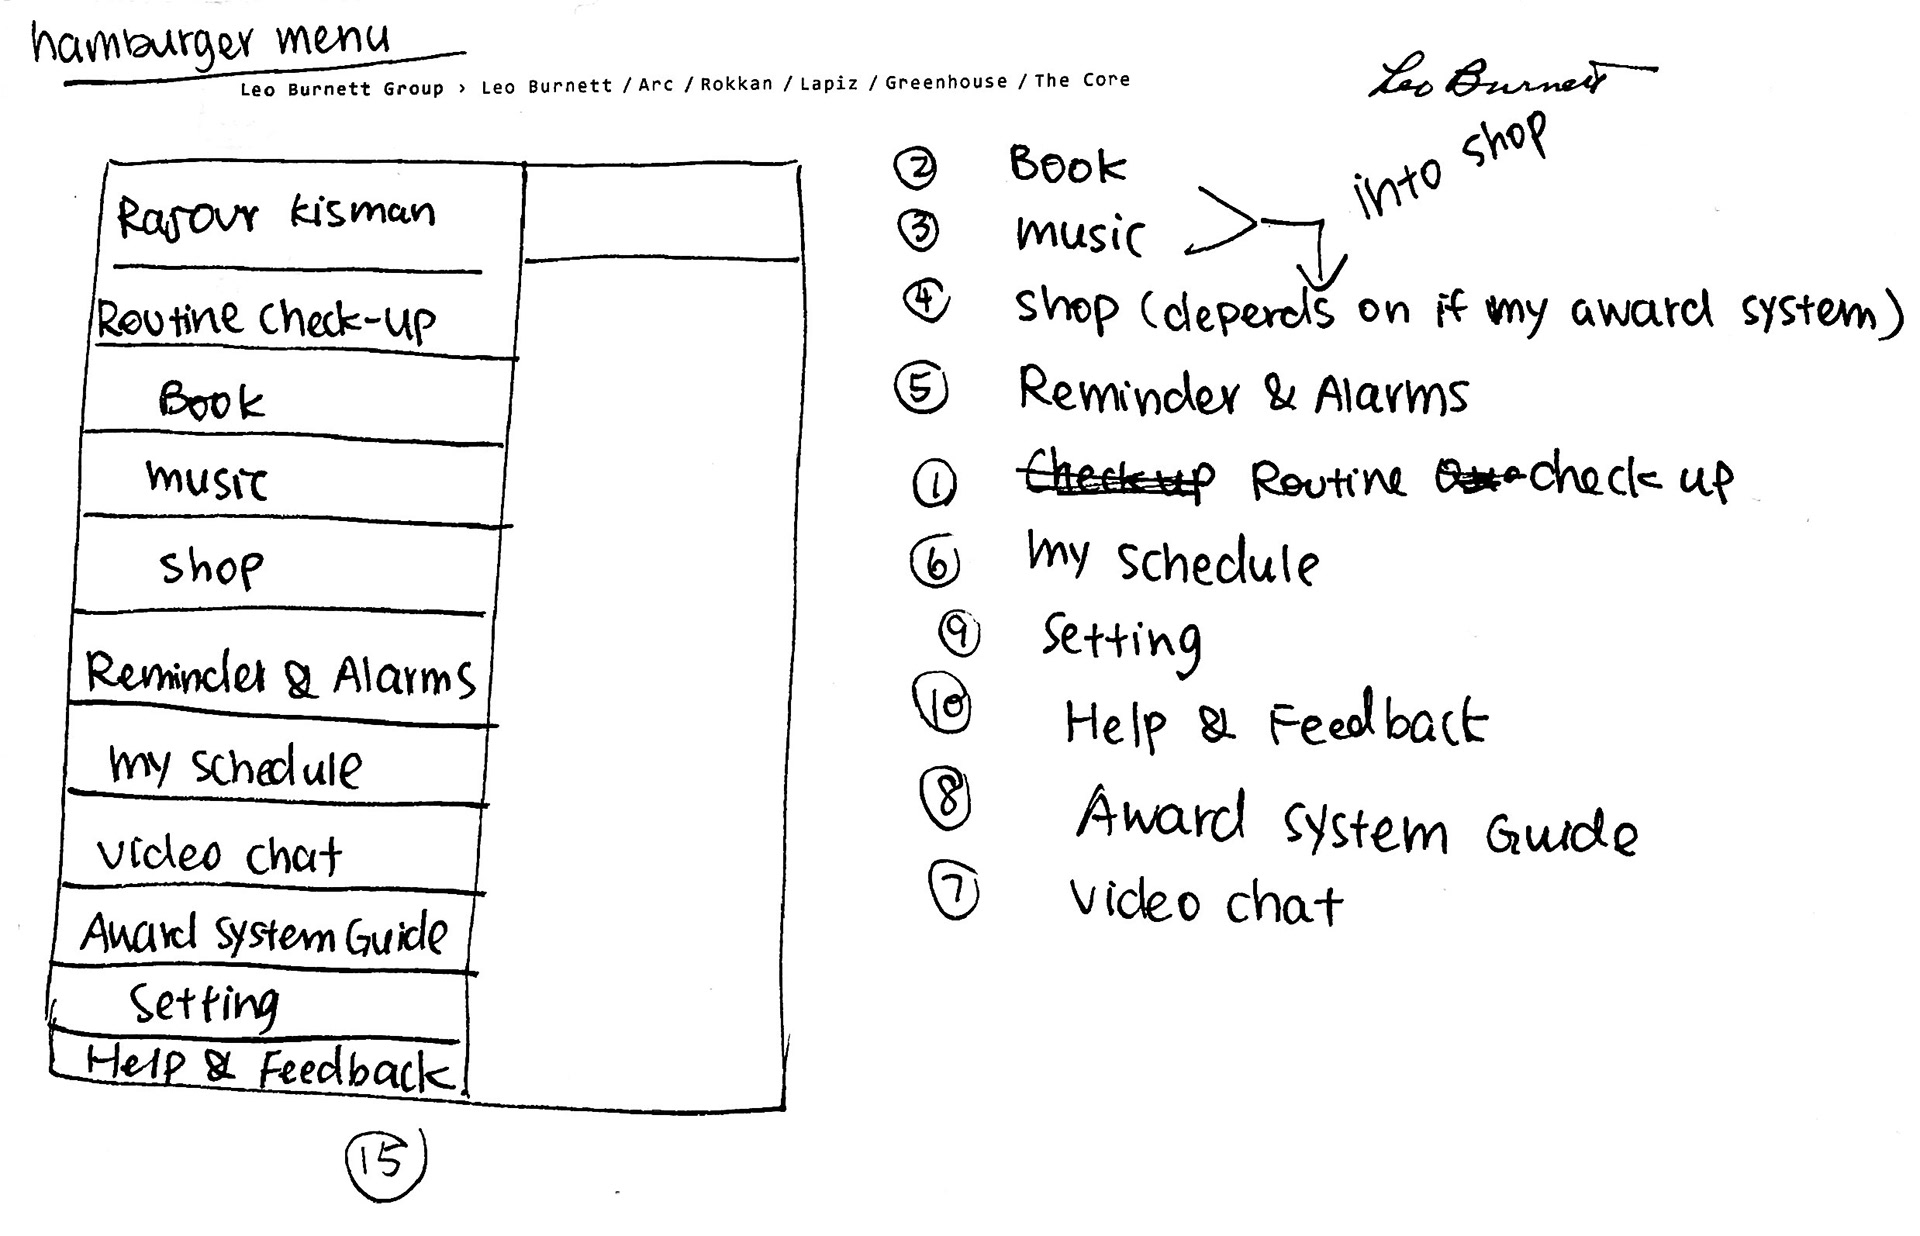 hamburger menu
Leo Burnett Group > Leo Burnett / Arc / Rokkan / Lapiz / Greenhouse / The Core
Leo Burnett
Rajour Kisman
Routine Check-up
Book
music
shop
Reminder & Alarms
my schedule
video chat
Award System Guide
Setting
Help & Feedback
15
2 Book
3 music
into shop
4 shop (depends on if my award system)
5 Reminder & Alarms
1 Check up Routine check up
6 my schedule
9 Setting
10 Help & Feedback
8 Award System Guide
7 video chat